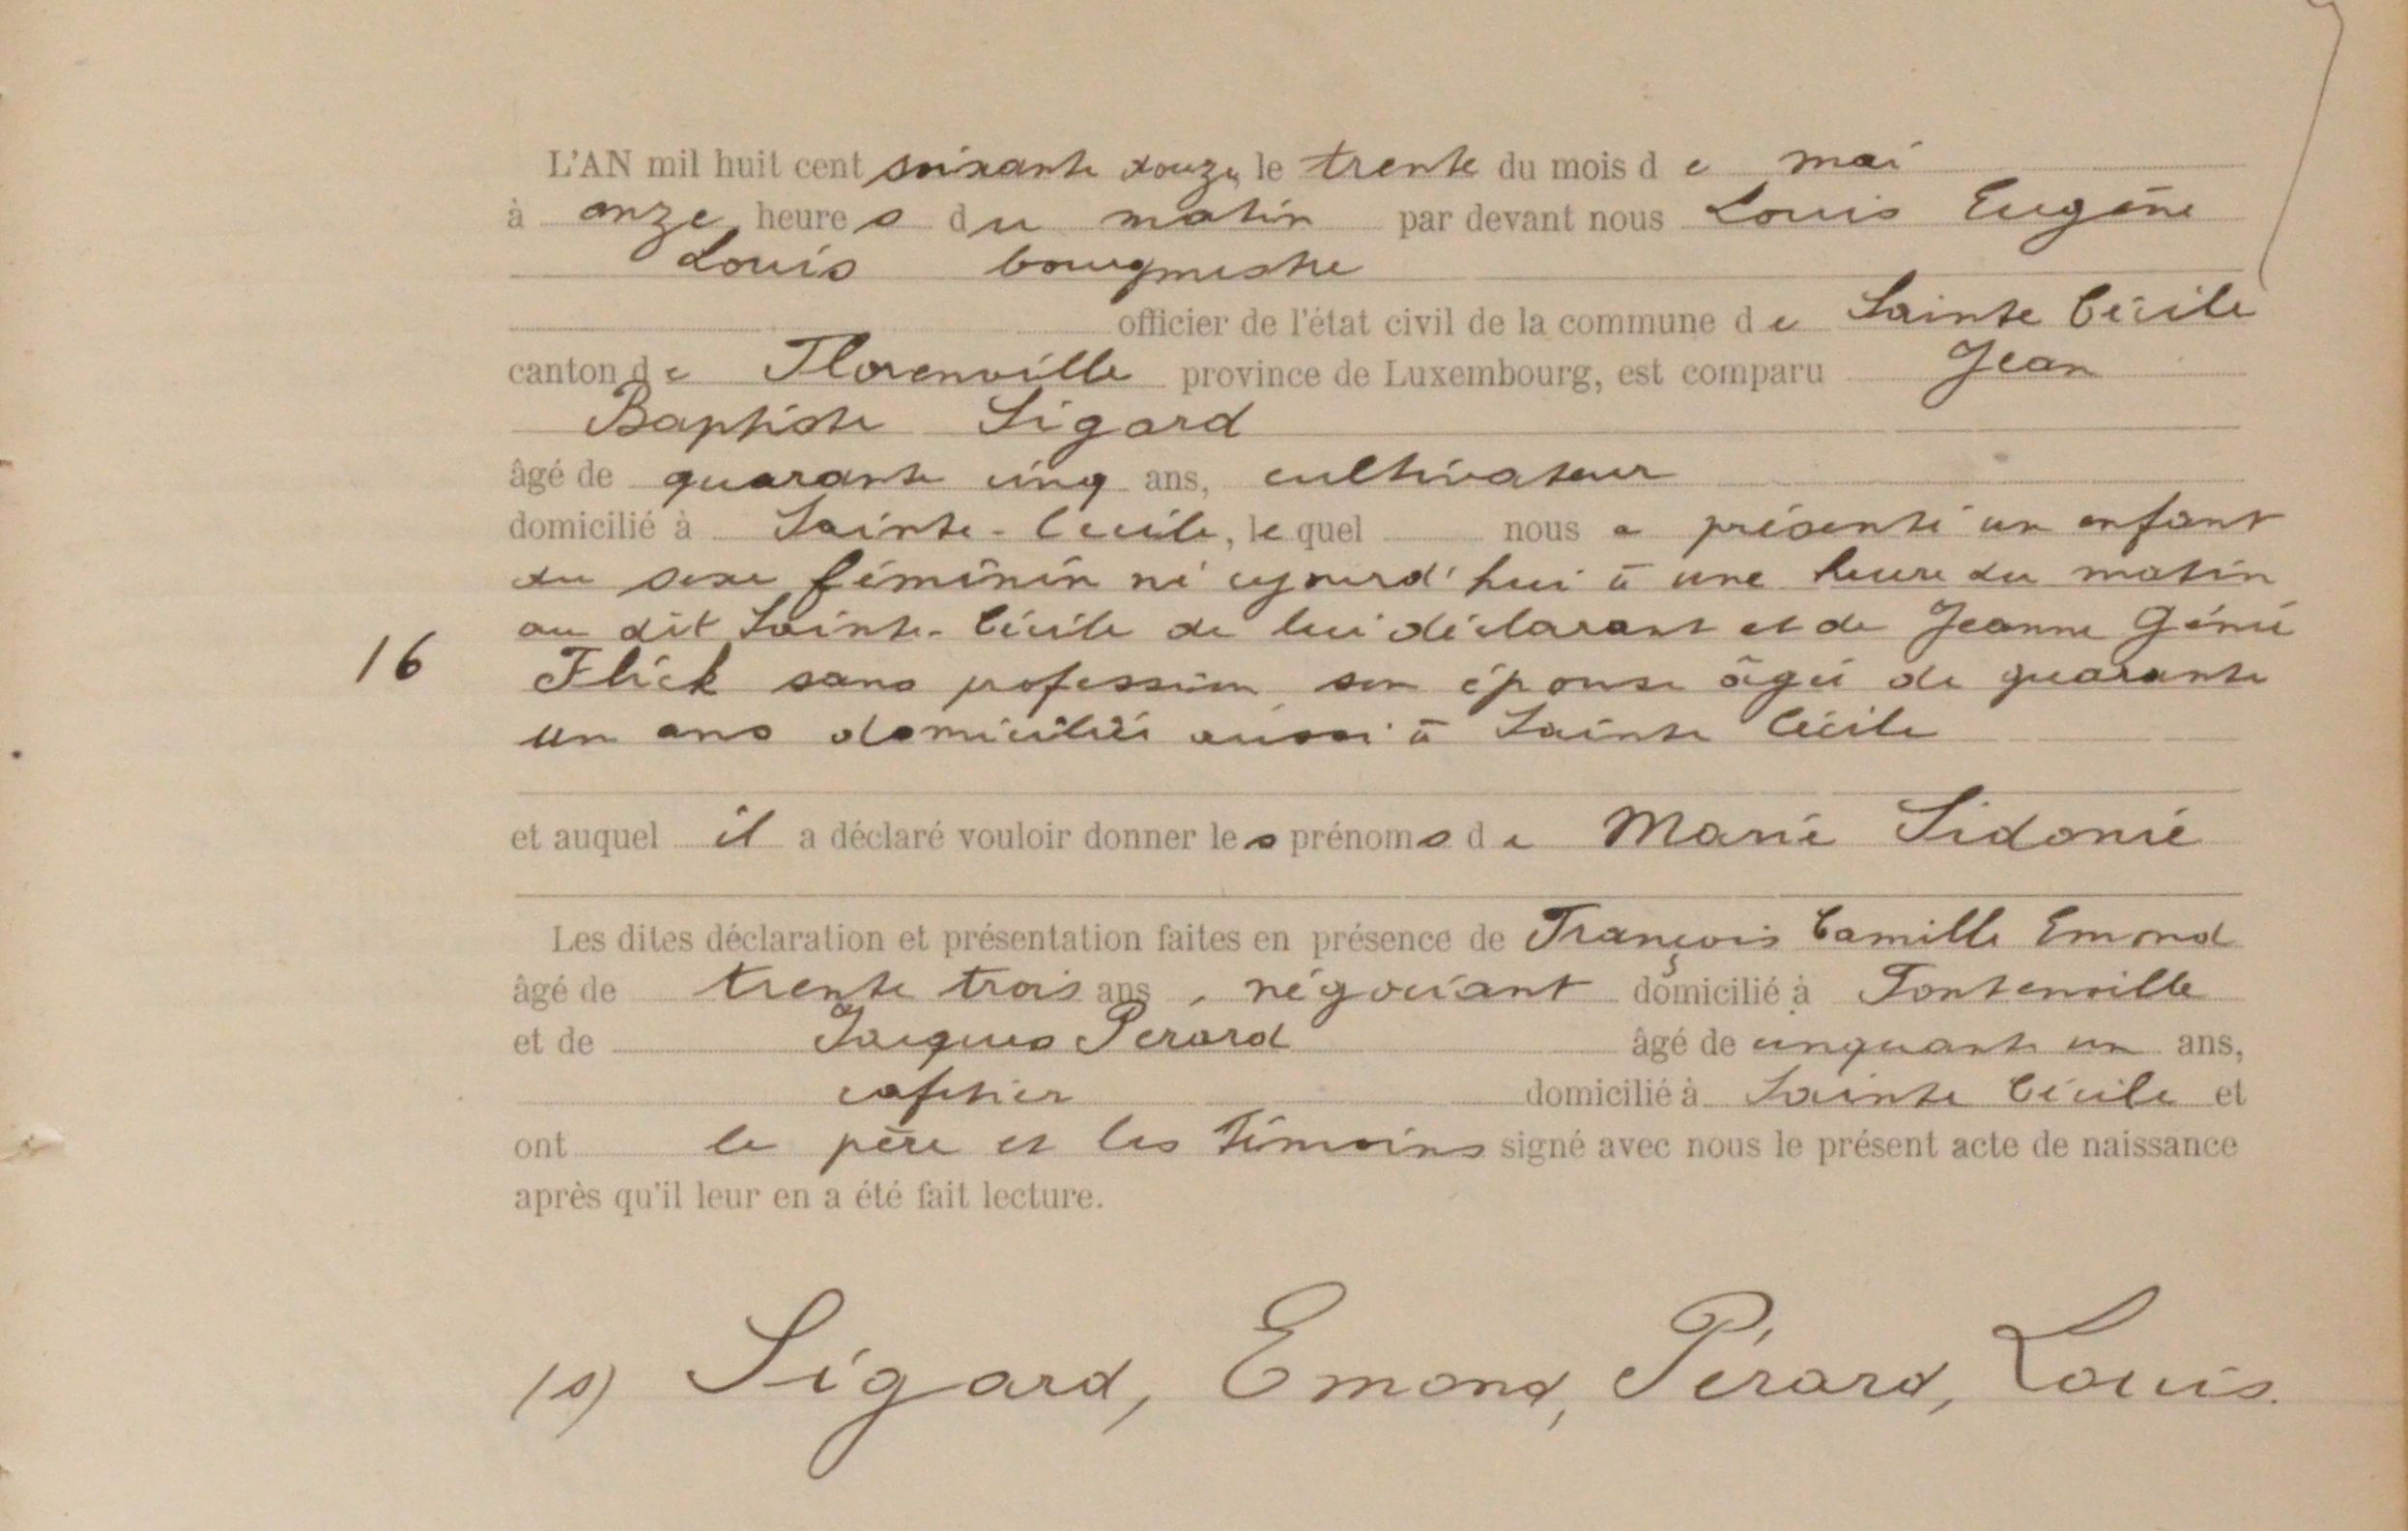 L'AN mil huit cent soixante douze le trente du mois d e mai
à onze heure s du matin par devant nous Louis Eugène
Louis bourgmestre
officier de l'état civil de la commune d e Sainte Cécile
canton d e Florenville province de Luxembourg, est comparu Jean
Baptiste Sigard
âgé de quarante cinq ans, cultivateur
domicilié à Sainte-Cécile, le quel nous a présenté un enfant
du sexe féminin né aujourd'hui à une heure du matin
au dit Sainte-Cécile de lui déclarant et de Jeanne
16 Flick sans profession son épouse âgée de quarante
un ans domiciliée aussi à Sainte Cécile
et auquel il a déclaré vouloir donner le s prénom s d e Marie Sidonie
Les dites déclaration et présentation faites en présence de François Camille Emond
âgé de trente trois ans, négociant domicilié à Fontenoille
et de Jacques Perard âgé de cinquante un ans,
cafetier domicilié à Sainte Cécile et
ont le père et les témoins signé avec nous le présent acte de naissance
après qu'il leur en a été fait lecture.
(s) Sigard, Emond, Pérard, Louis.